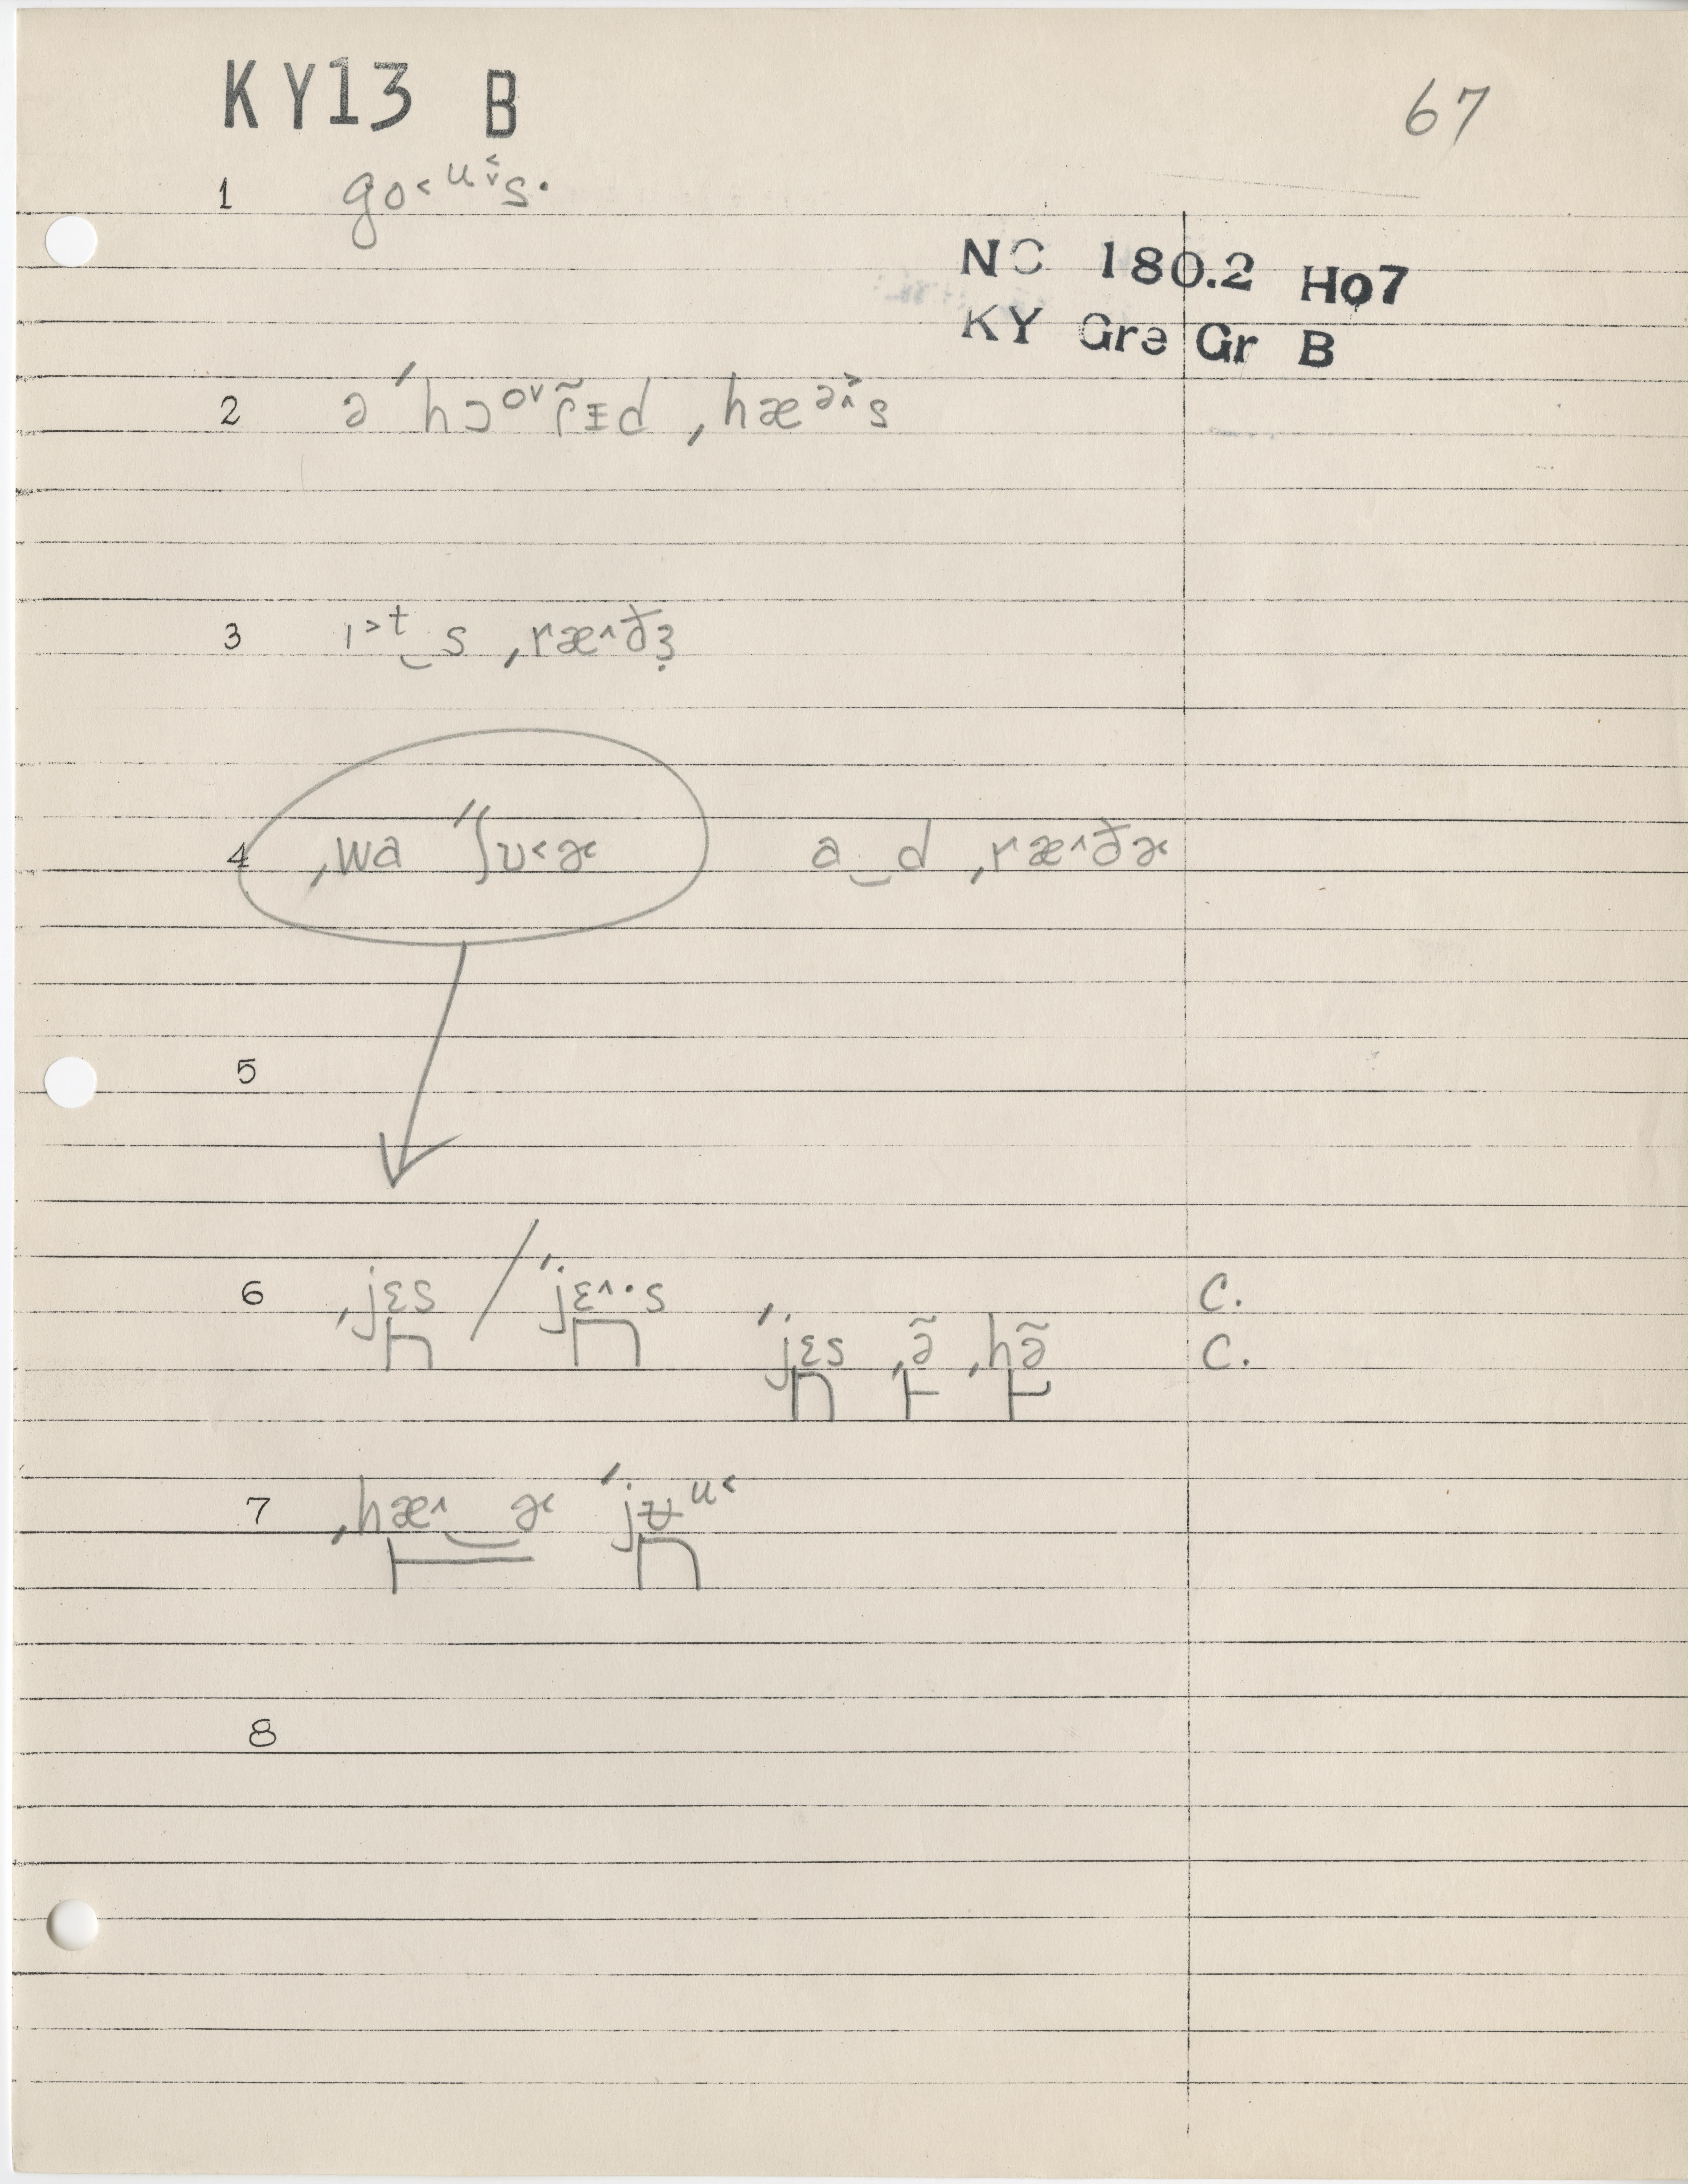 KY13 B
67
1 go˂ᵘ˂̬s·
NC 180.2 Ho7
KY Grə Gr B
2 ə ˊhɔᵒ˅ɾ̃ɪd ˏhæᵊ^s
3 ɪ˃t‿s ˏræ^ðɚ
4 ˏwa ˝ʃʊ˂ɚ a‿d ˏræ^ðɚ
5
6 ˏjɛs / ˝jɛ^·s C.
ˊjɛs ˏə̃ ˏhə̃ C.
7 ˏhæ^‿ɚ ˊjʉᵘ˂
8